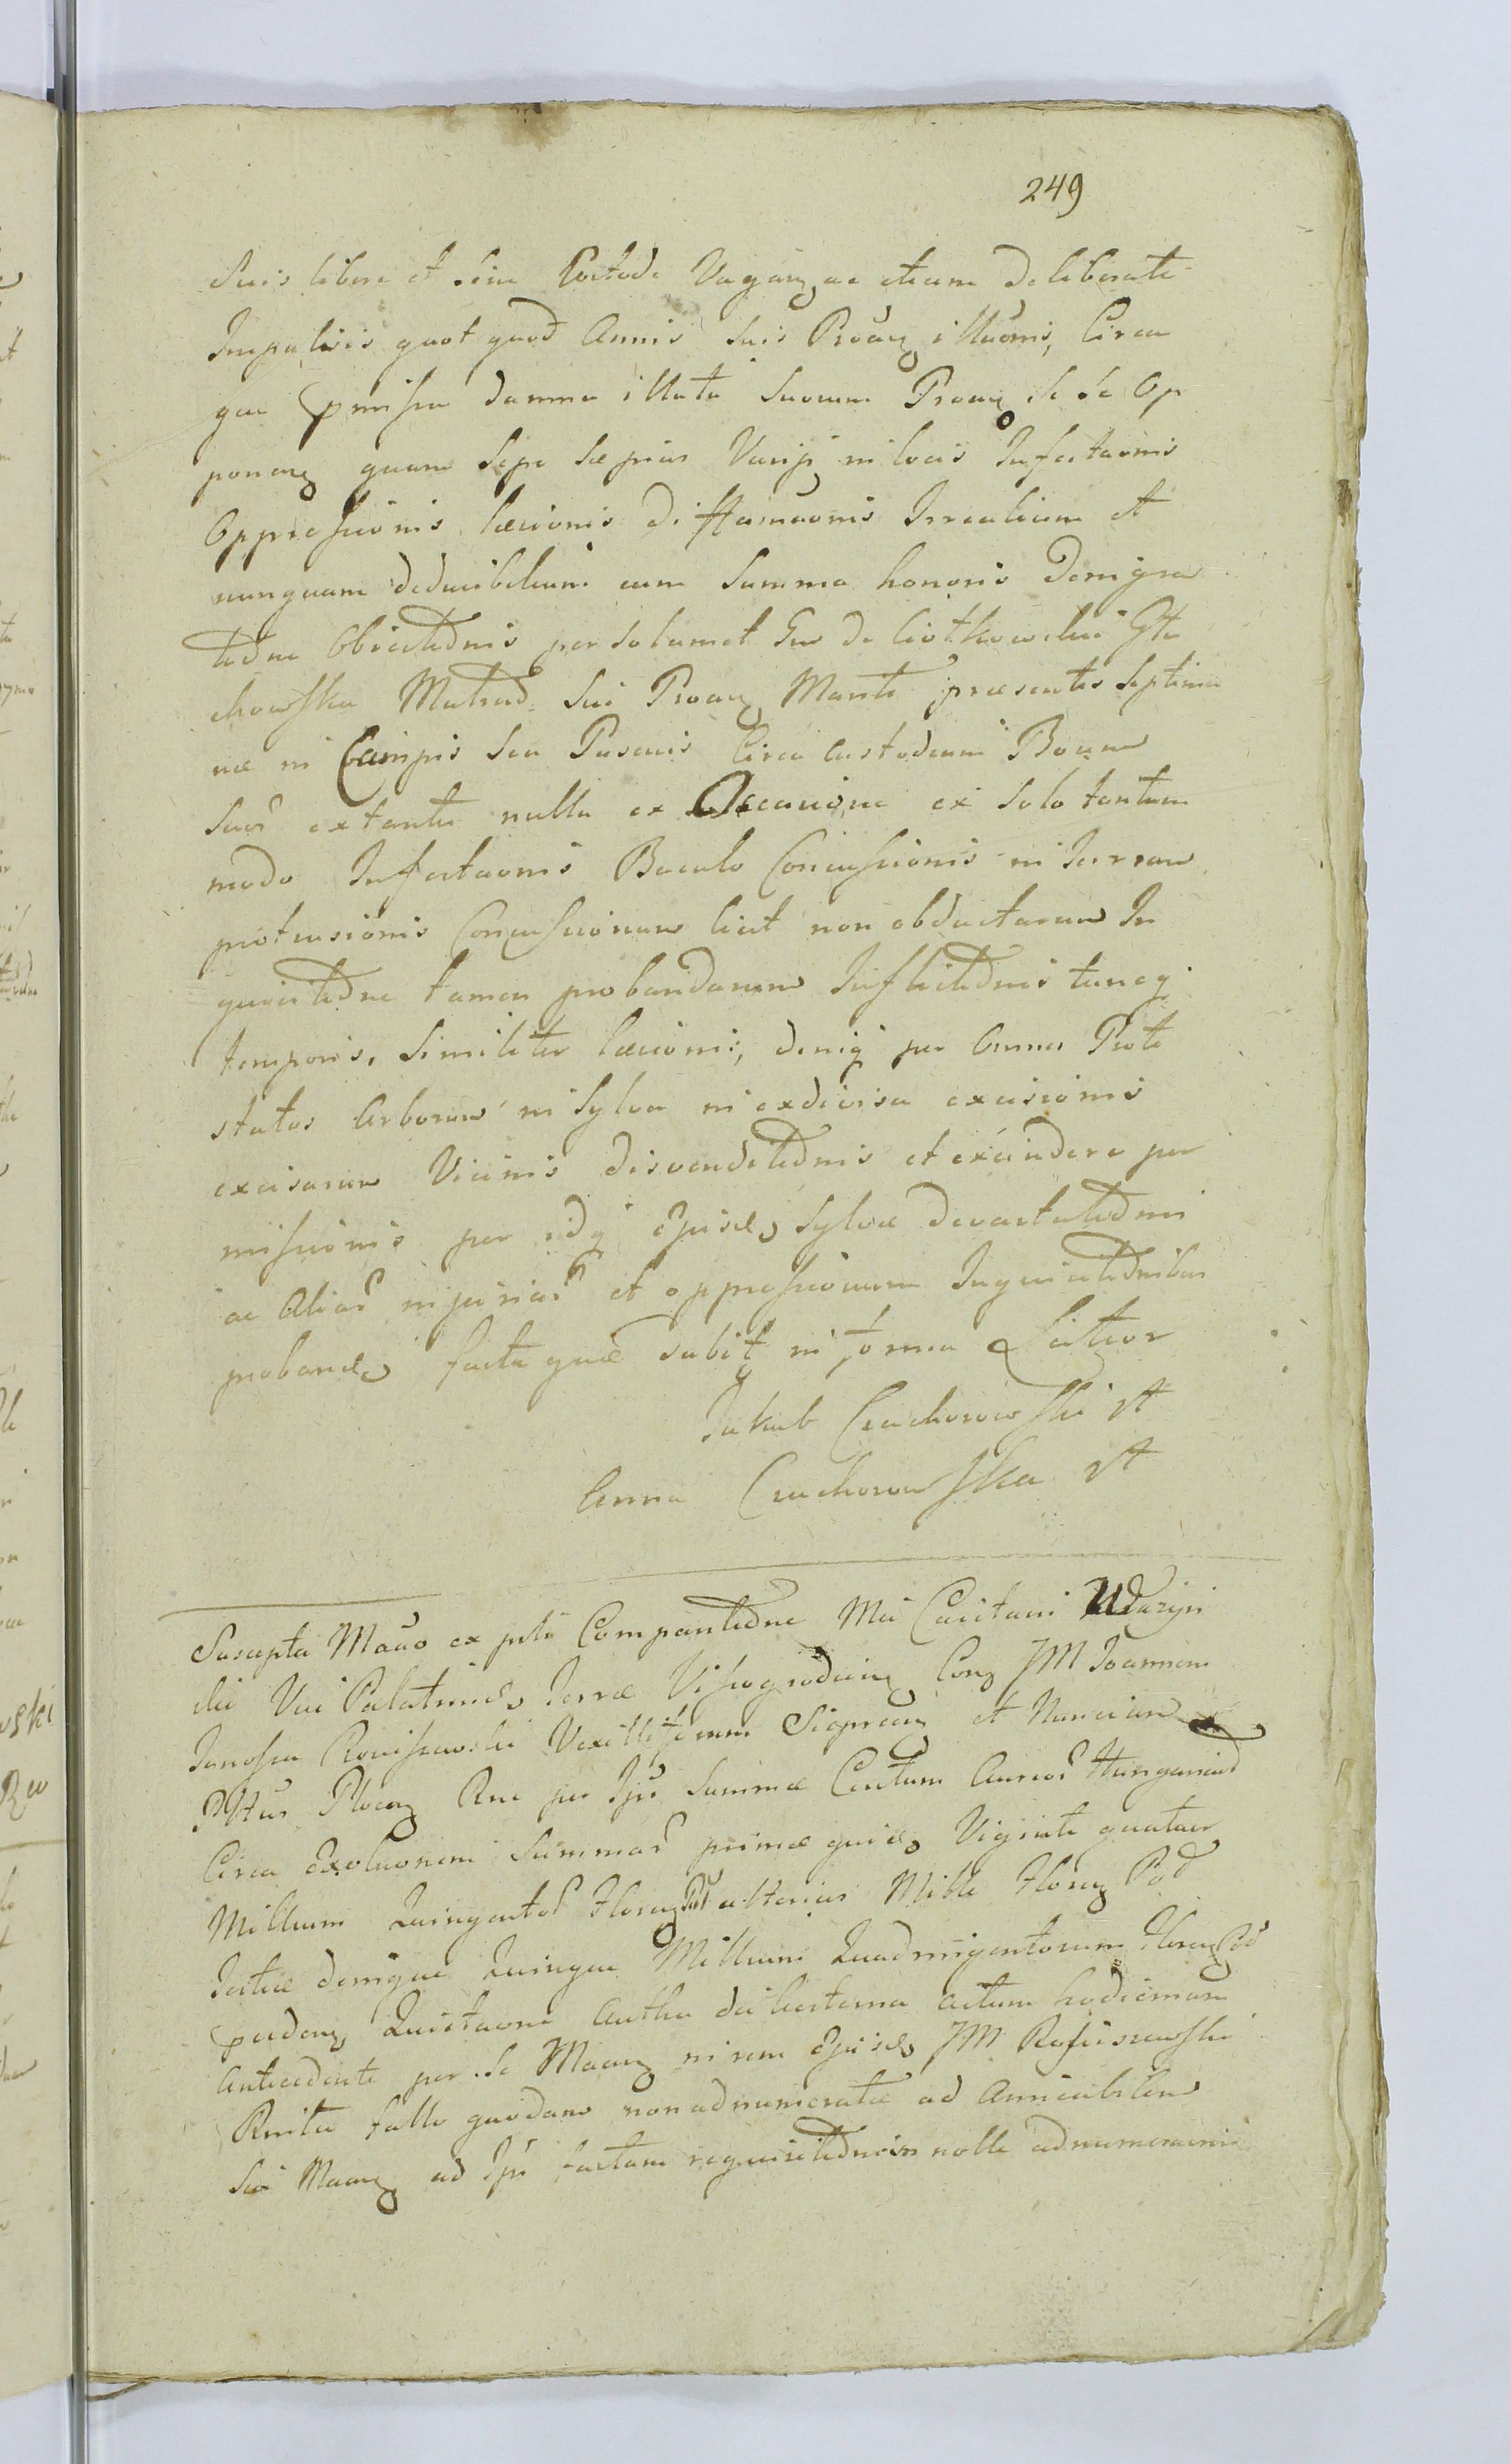 249
suis libere et sine Custode Vagan, ac etiam Deliberate
Impulsis quot quod Annis suis Procuz illaonis, Circa
qua pmissa damna illata suorum Procuz se se Op
ponenz quam sepe sæpius Varijs in locis Infestaonis
Oppressionis læsionis Diffamaonis Irrealium et
nunquam deducibilium cum Summa honoris Denigra
tedne Obiectednis per solamet Gw de Ciotkowskie
chowska Matrad. sui Procuz Marte præsentis septima
næ in Campis seu Pascuis Circa Custodiam Boum
suor extante nulla ex Occasione ex solo tantum
modo Infestaonis Baculo Concussionis in Terram
protrusionis Concussionum licet non obductarum In
quisitedne tamen probandarum Inflictednis tuncq
temporis, similiter læsionis, deniq per Omnes Prote
status Arborum in Sylva in exdivisa excisionis
excisarum Vicinis disvenditednis et excindere per
missionis per idq ejusd, Sylvæ devastatedni
ac Aliar injuriar et oppressionum Inquisitednibus
proband, facta quæ subit in forma Latior
Jakub Czachorowski
Anna Czachorowska
Suscepta Maão ex ptu Comparitedne Mci Caietani Udazyn
ski Vice Palatined, Terræ Vissogrodien Conz JM Joannem
Janossa Rosciszewski Vexilliferum Sieprcen et Nuncium
Pltus Plocen Rne per Ipm Summæ Centum Aureor Hungaricd
Circa Exoluonem Summar primæ quid, Viginti quatuor
Millium Quingentor Florenz Pol alterius Mille Florenz Pol
Tertiæ denique Quinque Millium Quadringentorum Florenz Pol
pceden, Quietaone Authen die hesterna actum hodiernum
antecedente per se Maanz in rem Ejusd, JM Rosciszewski
Rnita fallo quodam non adnumeratæ ad Amicabilem
sui Maanz ad Ipm factam requisitednem nolle adnumeraoni